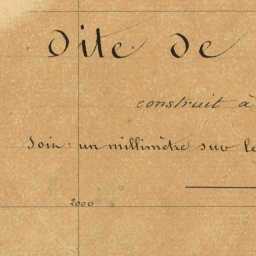 Dite de
construit à
Soit: un millimètre sur le
2000